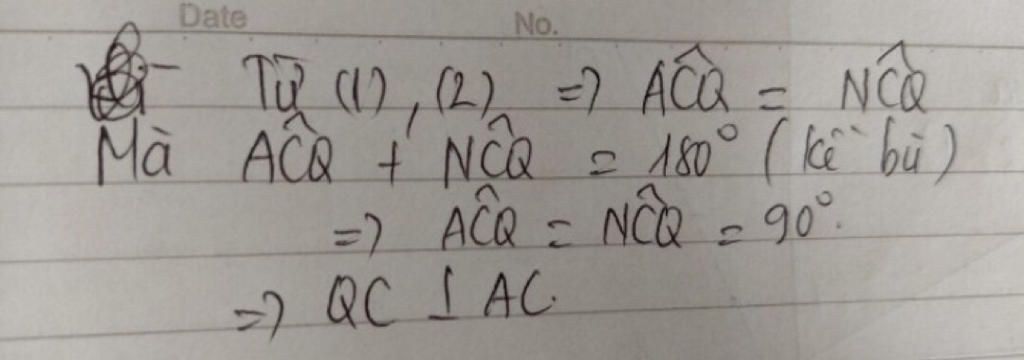 Date No.
- Từ (1), (2) => AĈQ = NĈQ
Mà AĈQ + NĈQ = 180° (kề bù)
=> AĈQ = NĈQ = 90°.
=> QC ⊥ AC.